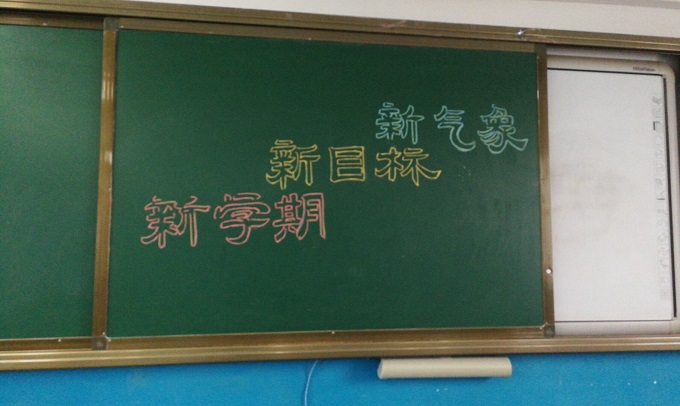 新气象
新目标
新学期